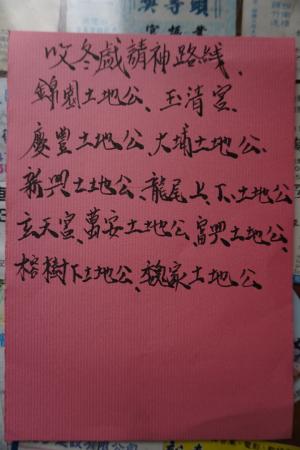 收冬戲請神路线、
錦園土地公、玉清宮、
慶豐土地公、大埔土地公、
新興土地公、龍尾上、下、土地公
玄天宮、萬安土地公、富興土地公、
榕樹下土地公、魏家土地公